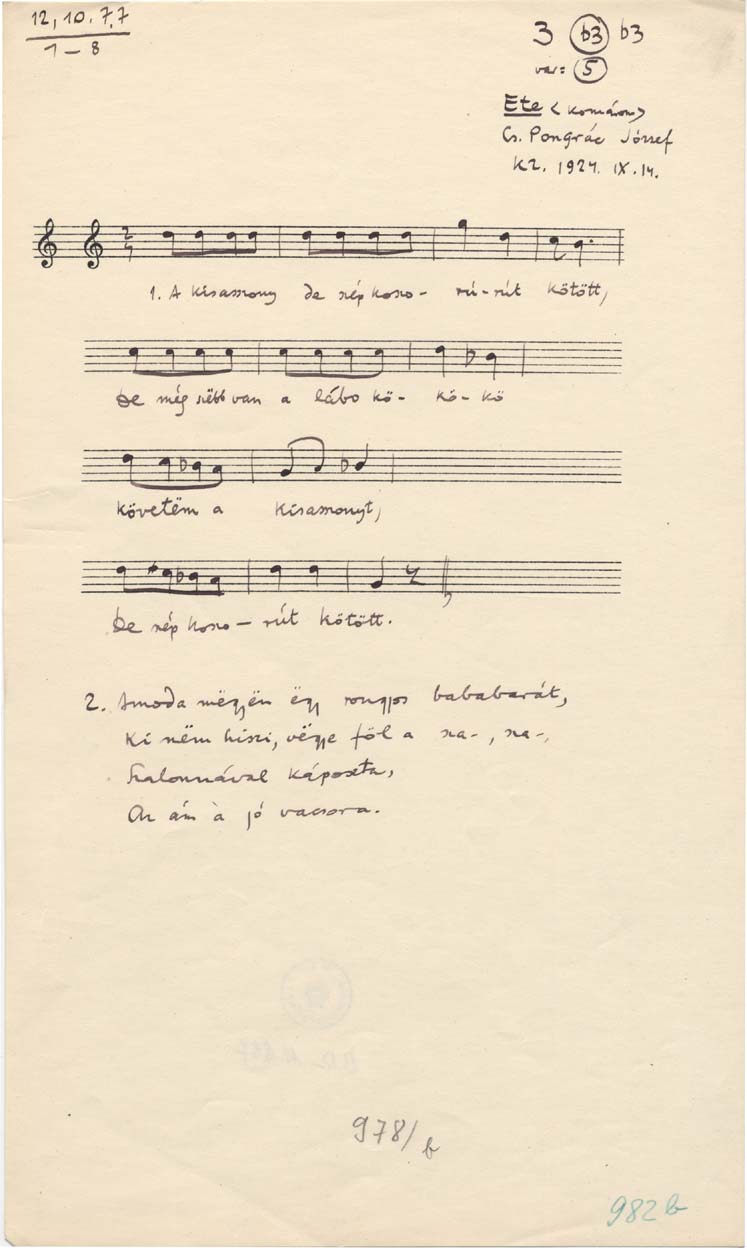 12, 10. 7, 7
1 – 8
3 b3 b3
var: 5
Ete < Komárom >
Cs. Pongrác József
KZ. 1924. IX. 14.
2
4
1. A kisasszony de szép koszo- rú-rút kötött,
De még szëbb van a lábo kö- kö-kö
követëm a kisasszonyt,
De szép koszo- rút kötött.
2. Amoda mëgyën ëgy rongyos bababarát,
Ki nëm hiszi, végye föl a sza-, sza-,
Szalonnával káposzta,
Az ám à jó vacsora.
978/b
982 b